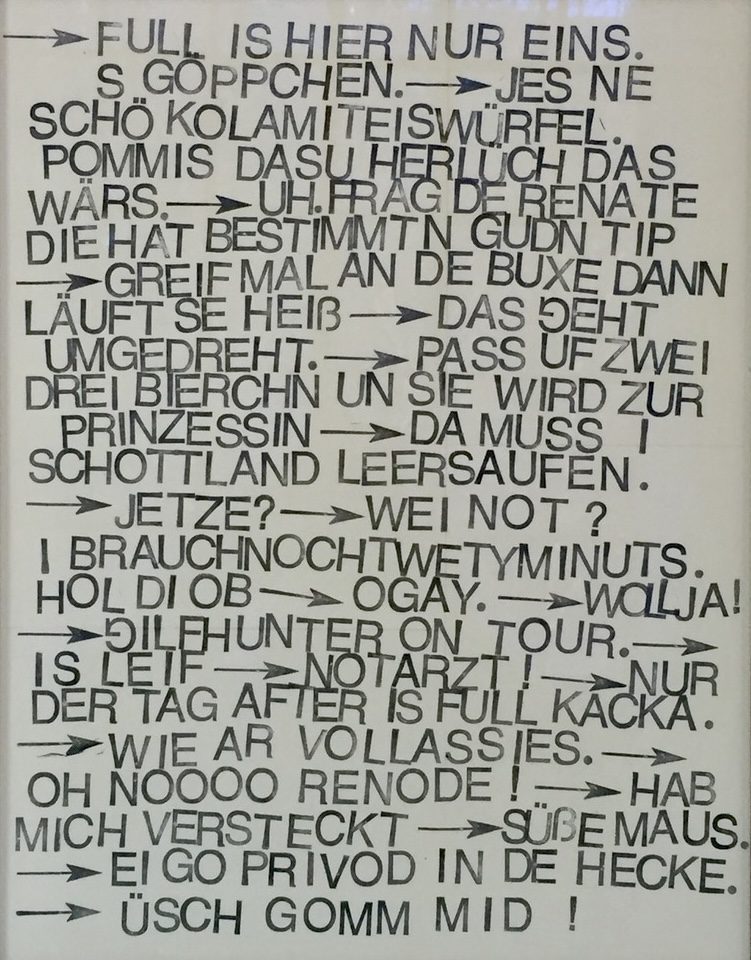 → FULL IS HIER NUR EINS.
S GÖPPCHEN. → JES NE
SCHÖ KOLAMITEISWÜRFEL.
POMMIS DASU HERLÜCH DAS
WÄRS. → UH. FRAG DE RENATE
DIE HAT BESTIMMTN GUDN TIP
→ GREIF MAL AN DE BUXE DANN
LÄUFT SE HEIß → DAS GEHT
UMGEDREHT. → PASS UF ZWEI
DREI BIERCHN UN SIE WIRD ZUR
PRINZESSIN → DA MUSS I
SCHOTTLAND LEERSAUFEN.
→ JETZE? → WEI NOT ?
I BRAUCHNOCHTWETYMINUTS.
HOL DI OB → OGAY. → WOLLJA!
→ GILFHUNTER ON TOUR. →
IS LEIF → NOTARZT! → NUR
DER TAG AFTER IS FULL KACKA.
→ WIE AR VOLLASSIES. →
OH NOOOO RENODE ! → HAB
MICH VERSTECKT → SÜßE MAUS.
→ EI GO PRIVOD IN DE HECKE.
→ ÜSCH GOMM MID !